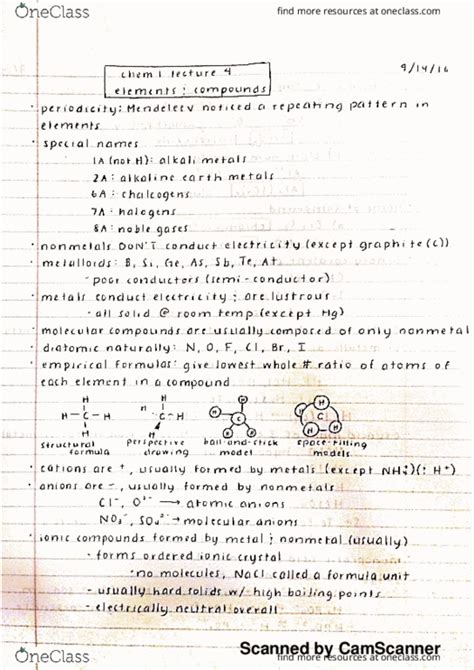 OneClass
find more resources at oneclass.com
chem 1 lecture 4
9/14/16
elements ; compounds
· periodicity: Mendeleev noticed a repeating pattern in
elements
· special names
1A (not H): alkali metals
2A: alkaline earth metals
6A: chalcogens
7A: halogens
8A: noble gases
· nonmetals DON'T conduct electricity (except graphite (C))
· metalloids: B, Si, Ge, As, Sb, Te, At
- poor conductors (semi-conductor)
· metals conduct electricity ; are lustrous
- all solid @ room temp (except Hg)
· molecular compounds are usually composed of only nonmetal
· diatomic naturally: N, O, F, Cl, Br, I
· empirical formulas: give lowest whole # ratio of atoms of
each element in a compound
H
H - C - H
H
H
C H
H
H
H C H
H
H
H C H
H
structural formula
perspective drawing
ball-and-stick model
space-filling models
· cations are +, usually formed by metals (except NH₄⁺)(; H⁺)
· anions are -, usually formed by nonmetals
Cl⁻, O²⁻ → atomic anions
NO₃⁻, SO₄²⁻ → molecular anions
· ionic compounds formed by metal ; nonmetal (usually)
- forms ordered ionic crystal
· no molecules, NaCl called a formula unit
- usually hard solids w/ high boiling points
- electrically neutral overall
Scanned by CamScanner
OneClass
find more resources at oneclass.com